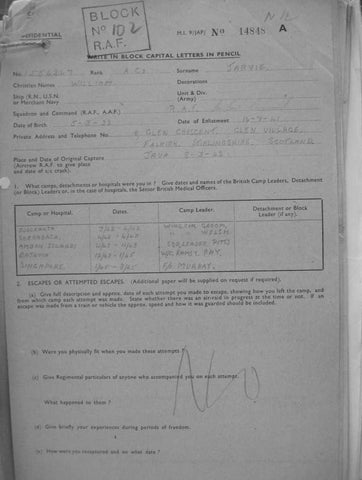 BLOCK
Nº 102
R.A.F.
M.I. 9/JAP/ Nº 14848 A
WRITE IN BLOCK CAPITAL LETTERS IN PENCIL
No. Rank Surname JARVIE
Christian Names WILLIAM Decorations
Ship (R.N., U.S.N. or Merchant Navy Unit & Div. (Army)
Squadron and Command (R.A.F., A.A.F.) R.A.F.
Date of Birth Date of Enlistment
Private Address and Telephone No. GLEN CRESCENT, GLEN VILLAGE,
FALKIRK, STIRLINGSHIRE, SCOTLAND
Place and Date of Original Capture JAVA 8-3-42
(Aircrew R.A.F. to give place
and date of a/c crash).
1. What camps, detachments or hospitals were you in? Give dates and names of the British Camp Leaders, Detachment
(or Block) Leaders or, in the case of hospitals, the Senior British Medical Officers.
Camp or Hospital. Dates. Camp Leader. Detachment or Block Leader (if any).
WING COM GROOM,
SOERABAJA
AMBON ISLANDS SQD. LEADER PITTS
BATAVIA W/C RAMSEY RAE.
SINGAPORE. F/L MURRAY.
2. ESCAPES OR ATTEMPTED ESCAPES. (Additional paper will be supplied on request if required).
(a) Give full description and approx. date of each attempt you made to escape, showing how you left the camp, and
from which camp each attempt was made. State whether there was an air-raid in progress at the time or not. If an
escape was made from a train or vehicle the approx. speed and how it was guarded should be included.
(b) Were you physically fit when you made these attempts?
(c) Give Regimental particulars of anyone who accompanied you on each attempt.
No
What happened to them?
(d) Give briefly your experiences during periods of freedom.
(e) How were you recaptured and on what date?